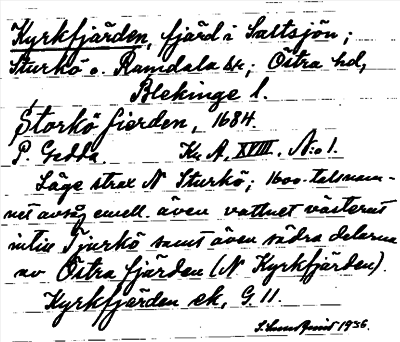 Kyrkfjärden, fjärd i Saltsjön;
Sturkö o. Ramdala sk; Östra hd,
Blekinge l.
Storkö fierden, 1684.
P. Gedda. Kr. A. XVIII. N:o 1.
Läge strax N Sturkö; 1600-talsnam-
net avsåg emell. även vattnet västerut
intill Tjurkö samt även södra delarna
av Östra fjärden (N Kyrkfjärden).
Kyrkfjärden ek, G 11.
1936.